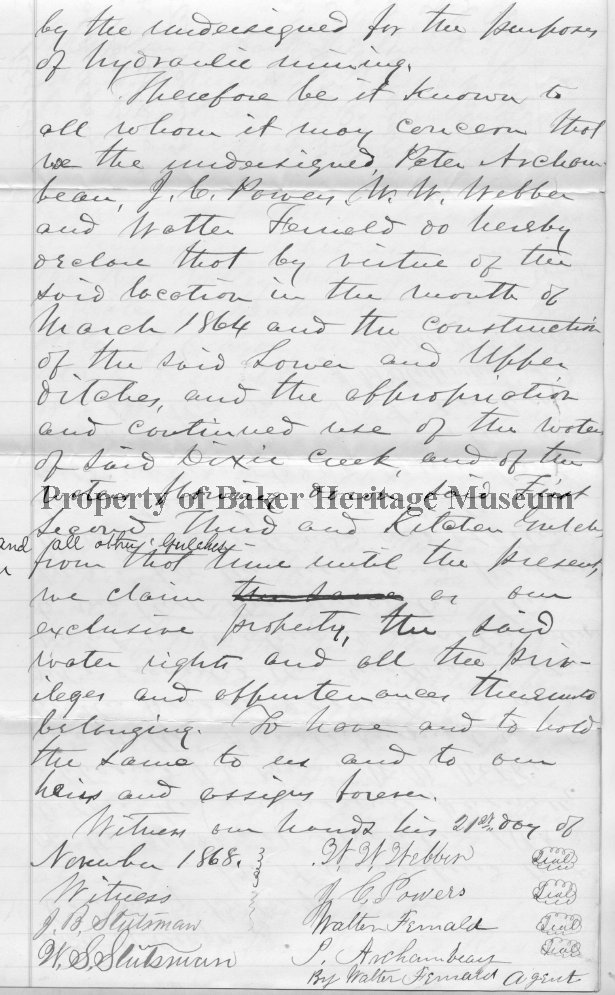 by the undersigned for the purposes
of hydraulic mining.
Therefore be it known to
all whom it may concern that
we the undersigned, Peter Archam
beau, J. C. Powers, W. W. Webber
and Walter Fernald do hereby
declare that by virtue of the
said location in the month of
March 1864 and the construction
of the said Lower and Upper
ditches, and the appropriation
and continued use of the water
of said Dixie Creek, and of the
water flowing down said First
Property of Baker Heritage Museum
Second Third and Kitchen Gulch
and all other Gulches
from that time until the present,
we claim the same as our
exclusive property, the said
water rights and all the priv-
ileges and appurtenances thereunto
belonging. To have and to hold
the same to us and to our
heirs and assigns forever.
Witness our hands this 21st day of
November 1868. W. W. Webber Seal
Witness J. C. Powers Seal
J. B. Stutsman Walter Fernald Seal
W. S. Stutsman P. Archambeau Seal
By Walter Fernald Agent